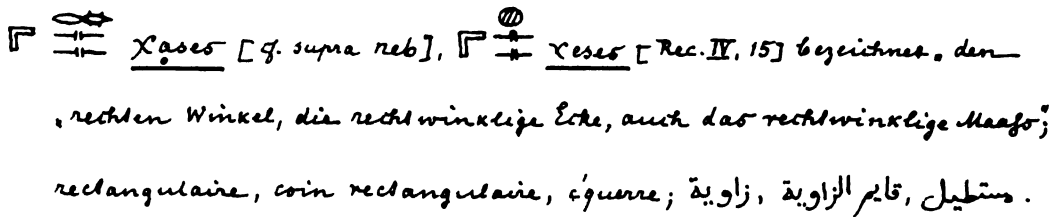 χạses [cf. supra neb], χeses [Rec. IV, 15] bezeichnet „den
„rechten Winkel, die rechtwinklige Ecke, auch das rechtwinklige Maaſs“;
rectangulaire, coin rectangulaire, équerre; زاوية, قايم الزاوية, مستطيل.